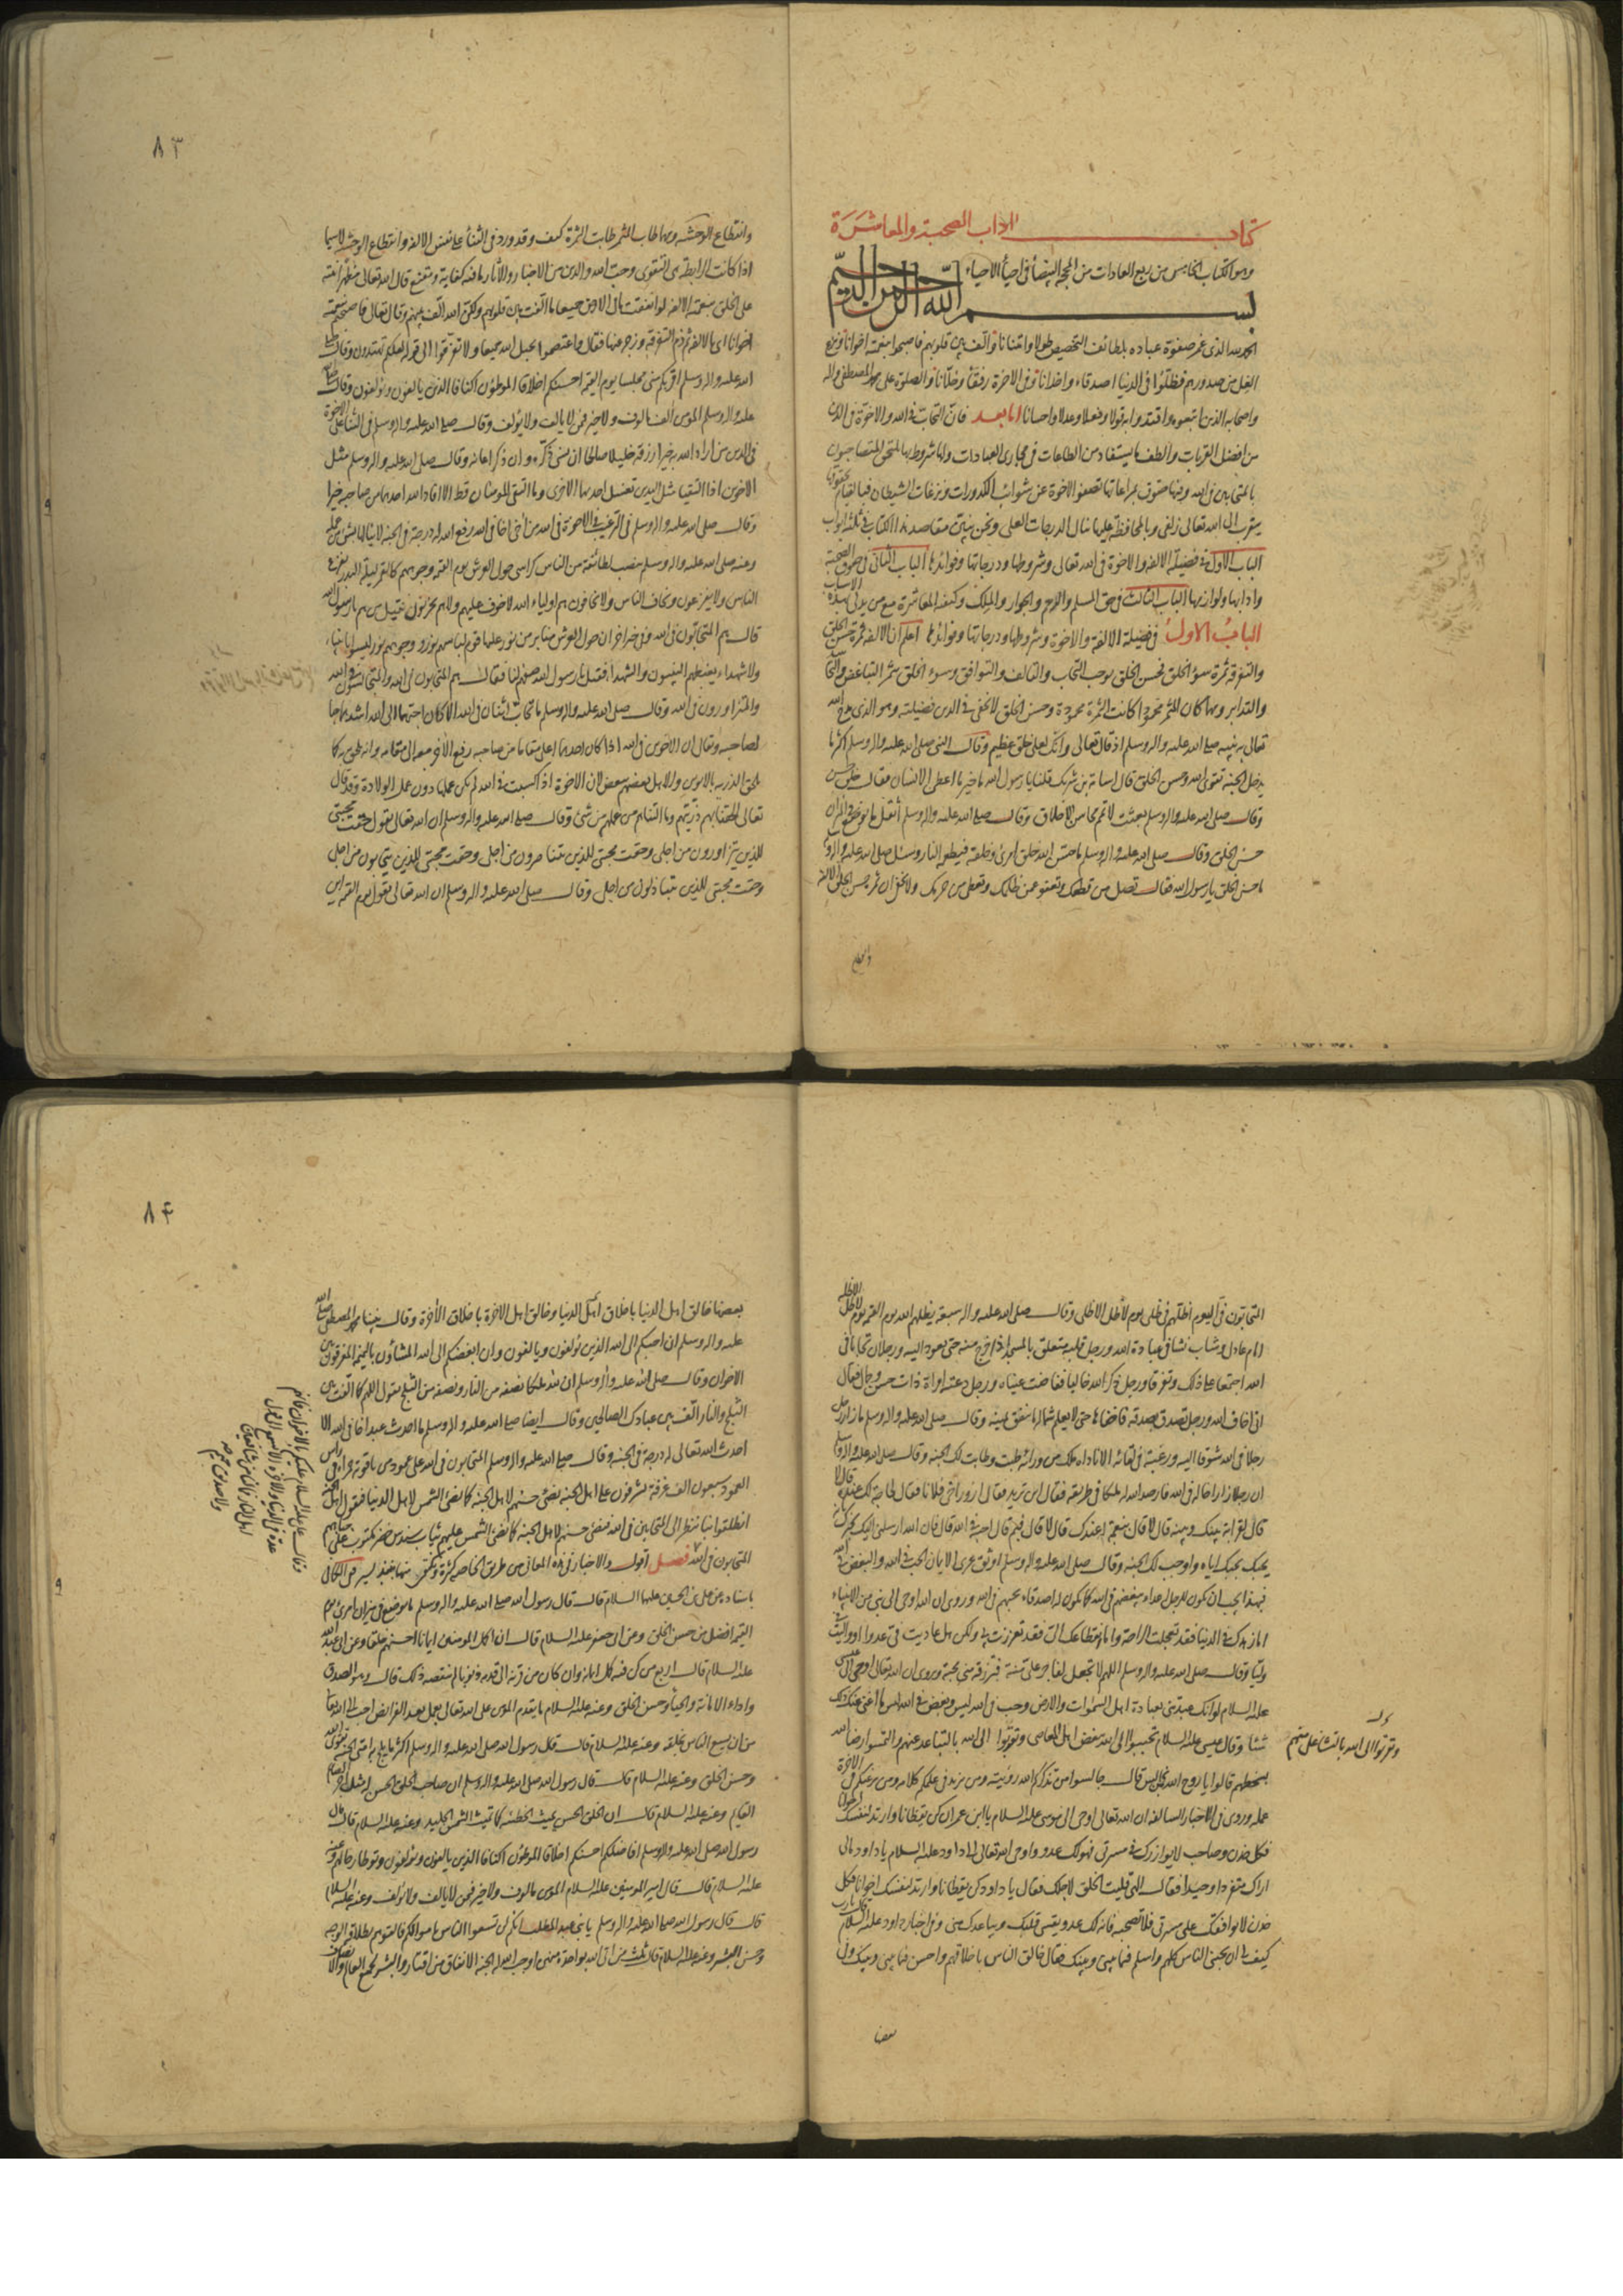 كتاب اداب الصحبة والمعاشرة
وهو الكتاب الخامس من ربع العادات من المحجة البيضاء في احياء الاحياء
بسم الله الرحمن الرحيم
الحمد لله الذي غمر صفوة عباده بلطائف التخصيص طولا وامتنانا والّف بين قلوبهم فاصبحوا بنعمته اخوانا ونزع
الغل من صدورهم فظلّوا في الدنيا اصدقاء واخدانا وفي الاخرة رفقاء وخلّانا والصلوة على محمد المصطفى واله
واصحابه الذين اتبعوه واقتدوا به قولا وفعلا وعدلا واحسانا اما بعد فانّ التحابّ في الله والاخوّة في الدين
من افضل القربات والطف ما يستفاد من الطاعات في مجاري العبادات ولها شروط بها يلتحق المتصاحبون
بالمتحابين في الله وفيها حقوق بمراعاتها تصفو الاخوة عن شوائب الكدورات ونزغات الشيطان فبالقيام بحقوقها
يتقرب الى الله تعالى زلفى وبالمحافظة عليها تنال الدرجات العلى ونحن نبيّن مقاصد هذا الكتاب في ثلثة ابواب
الباب الاول في فضيلة الالفة والاخوة في الله تعالى وشروطها ودرجاتها وفوائدها الباب الثاني في حقوق الصحبة
وادابها ولوازمها الباب الثالث في حق المسلم والرحم والجوار والملك وكيفية المعاشرة مع من يدلي بهذه الاسباب
الباب الاول في فضيلة الالفة والاخوة وشروطها ودرجاتها وفوائدها اعلم ان الالفة ثمرة حسن الخلق
والتفرق ثمرة سوء الخلق فحسن الخلق يوجب التحاب والتالف والتوافق وسوء الخلق يثمر التباغض والتحاسد
والتدابر ومهما كان المثمر محمودا كانت الثمرة محمودة وحسن الخلق لا تخفى في الدين فضيلته وهو الذي مدح الله
تعالى به نبيه صلى الله عليه واله وسلم اذ قال تعالى وانك لعلى خلق عظيم وقال النبي صلى الله عليه واله وسلم اكثر ما
يدخل الجنة تقوى الله وحسن الخلق قال اسامة بن شريك قلنا يا رسول الله ما خير ما اعطى الانسان فقال خلق حسن
وقال صلى الله عليه واله وسلم بعثت لاتمم محاسن الاخلاق وقال صلى الله عليه واله وسلم أثقل ما يوضع في الميزان
حسن الخلق وقال صلى الله عليه واله وسلم ما حسّن الله خلق امرئ وخلقه فيطعمه النار وسئل صلى الله عليه واله
ما حسن الخلق يا رسول الله فقال تصل من قطعك وتعفو عمن ظلمك وتعطي من حرمك ولا يخفى ان ثمرة حسن الخلق الالفة
وانقطاع
٨٣
وانقطاع الوحشة ومهما طاب المثمر طابت الثمرة كيف وقد ورد في الثناء على نفس الالفة وانقطاع الوحشة لا سيما
اذا كانت الرابطة هي التقوى وحب الله والدين من الاخبار والاثار ما فيه كفاية ومقنع قال الله تعالى مظهرا منته
على الخلق بنعمة الالفة لو انفقت ما في الارض جميعا ما الّفت بين قلوبهم ولكن الله الّف بينهم وقال تعالى فاصبحتم بنعمته
اخوانا اي بالالفة ثم ذم التفرقة وزجر عنها فقال واعتصموا بحبل الله جميعا ولا تفرقوا الى قوله لعلكم تهتدون وقال صلى
الله عليه واله وسلم اقربكم مني مجلسا يوم القيمة احسنكم اخلاقا الموطّئون اكنافا الذين يألفون ويؤلفون وقال صلى الله
عليه واله وسلم المؤمن الف مالوف ولا خير فيمن لا يالف ولا يؤلف وقال صلى الله عليه واله وسلم في الثناء على الاخوة
في الدين من اراد الله به خيرا رزقه خليلا صالحا ان نسي ذكّره وان ذكر اعانه وقال صلى الله عليه واله وسلم مثل
الاخوين اذا التقيا مثل اليدين تغسل احديهما الاخرى وما التقى المؤمنان قط الا افاد الله احدهما من صاحبه خيرا
وقال صلى الله عليه واله وسلم في الترغيب في الاخوة في الله من آخى اخا في الله رفع الله له درجة في الجنة لا ينالها بشيء من عمله
وعنه صلى الله عليه واله وسلم ينصب لطائفة من الناس كراسي حول العرش يوم القيمة وجوههم كالقمر ليلة البدر يفزع
الناس ولا يفزعون ويخاف الناس ولا يخافون هم اولياء الله لا خوف عليهم ولا هم يحزنون فقيل من هم يا رسول الله
قال هم المتحابون في الله وفي خبر اخر ان حول العرش منابر من نور عليها قوم لباسهم نور ووجوههم نور ليسوا بانبياء
ولا شهداء يغبطهم النبيون والشهداء فقيل يا رسول الله صفهم لنا فقال هم المتحابون في الله والمتجالسون في الله
والمتزاورون في الله وقال صلى الله عليه واله وسلم ما تحابّ اثنان في الله الا كان احبهما الى الله اشدهما حبا
لصاحبه ويقال ان الاخوين في الله اذا كان احدهما اعلى مقاما من صاحبه رفع الاخر معه الى مقامه وانه يلحق به كما
تلحق الذرية بالابوين والاهل بعضهم ببعض لان الاخوة اذا اكتسبت في الله لم تكن عملها دون عمل الولادة وقد قال
تعالى الحقنا بهم ذريتهم وما التناهم من عملهم من شيء وقال صلى الله عليه واله وسلم ان الله تعالى يقول حقت محبتي
للذين يتزاورون من اجلي وحقت محبتي للذين يتناصرون من اجلي وحقت محبتي للذين يتحابون من اجلي
وحقت محبتي للذين يتباذلون من اجلي وقال صلى الله عليه واله وسلم ان الله تعالى يقول يوم القيمة اين
المتحابون في اليوم اظلهم في ظلي يوم لا ظل الا ظلي وقال صلى الله عليه واله سبعة يظلهم الله يوم القيمة يوم لا ظل الا ظله
امام عادل وشاب نشا في عبادة الله ورجل قلبه متعلق بالمسجد اذا خرج منه حتى يعود اليه ورجلان تحابا في
الله اجتمعا على ذلك وتفرقا ورجل ذكر الله خاليا ففاضت عيناه ورجل دعته امراة ذات حسن وجمال فقال
اني اخاف الله ورجل تصدق بصدقة فاخفاها حتى لا يعلم شماله ما تنفق يمينه وقال صلى الله عليه واله وسلم ما زار رجل
رجلا في الله شوقا اليه ورغبة في لقائه الا ناداه ملك من ورائه طبت وطابت لك الجنة وقال صلى الله عليه واله وسلم
ان رجلا زار اخا له في الله فارصد الله له ملكا في طريقه فقال اين تريد فقال ازور اخي فلانا فقال لحاجة لك عنده قال لا
قال لقرابة بينك وبينه قال لا قال بنعمة له عندك قال لا قال فبم قال احبه في الله قال فان الله ارسلني اليك يخبرك بانه
يحبك بحبك اياه واوجب لك الجنة وقال صلى الله عليه واله وسلم اوثق عرى الايمان الحب في الله والبغض في الله
فبهذا يجب ان يكون للرجل اعداء يبغضهم في الله كما يكون له اصدقاء يحبهم في الله وروي ان الله اوحى الى نبي من الانبياء
اما زهدك في الدنيا فقد تعجلت الراحة واما انقطاعك الي فقد تعززت بي ولكن هل عاديت في عدوا او واليت في
وليا وقال صلى الله عليه واله وسلم اللهم لا تجعل لفاجر علي منة فترزقه مني محبة وروي ان الله تعالى اوحى الى عيسى
عليه السلام لو انك عبدتني بعبادة اهل السموات والارض وحب في الله ليس وبغض في الله ليس ما اغنى عنك ذلك
شيئا وقال عيسى عليه السلام تحببوا الى الله ببغض اهل المعاصي وتقربوا الى الله بالتباعد عنهم والتمسوا رضا الله
بسخطهم قالوا يا روح الله فمن نجالس قال جالسوا من تذكركم الله رؤيته ومن يزيد في علمكم كلامه ومن يرغبكم في الاخرة
عمله وروي في الاخبار السالفة ان الله تعالى اوحى الى موسى عليه السلام يا ابن عمران كن يقظانا وارتد لنفسك اخوانا
فكل خدن وصاحب لا يوازرك في مسرتي فهو لك عدو واوحى الله تعالى الى داود عليه السلام يا داود مالي
اراك منتبذا وحيدا فقال الهي قليت الخلق لاجلك فقال يا داود كن يقظانا وارتد لنفسك اخوانا فكل
خدن لا يوافقك على مسرتي فلا تصحبه فانه لك عدو ويقسي قلبك ويباعدك مني وفي اخبار داود عليه السلام قال يا رب
كيف لي ان يحبني الناس كلهم واسلم فيما بيني وبينك فقال خالق الناس باخلاقهم واحسن فيما بيني وبينك وفي
وتقربوا الى الله بالتباعد منهم
بعضها
٨٤
بعضها خالق اهل الدنيا باخلاق اهل الدنيا وخالق اهل الاخرة باخلاق الاخرة وقال نبينا محمد المصطفى صلى الله
عليه واله وسلم ان احبكم الى الله الذين يؤلفون ويالفون وان ابغضكم الى الله المشاؤن بالنميمة المفرقون بين
الاخوان وقال صلى الله عليه واله وسلم ان لله ملكا نصفه من النار ونصفه من الثلج يقول اللهم كما الّفت بين
الثلج والنار الّف بين عبادك الصالحين وقال ايضا صلى الله عليه واله وسلم ما احدث عبد اخا في الله الا
احدث الله تعالى له درجة في الجنة وقال صلى الله عليه واله وسلم المتحابون في الله على عمود من ياقوتة حمراء في راس
العمود سبعون الف غرفة يشرفون على اهل الجنة يضيء حسنهم لاهل الجنة كما تضيء الشمس لاهل الدنيا فيقول اهل الجنة
انطلقوا بنا ننظر الى المتحابين في الله فيضيء حسنهم لاهل الجنة كما تضيء الشمس عليهم ثياب سندس خضر مكتوب على جباههم
المتحابون في الله فصل اقول والاخبار في هذه المعاني من طريق الخاصة كثيرة ولنكتف منها بنبذ يسير ففي الكافي
باسناده عن علي بن الحسين عليهما السلام قال قال رسول الله صلى الله عليه واله وسلم ما يوضع في ميزان امرئ يوم
القيمة افضل من حسن الخلق وعن ابي جعفر عليه السلام قال ان اكمل المؤمنين ايمانا احسنهم خلقا وعن ابي عبد الله
عليه السلام قال اربع من كن فيه كمل ايمانه وان كان من قرنه الى قدمه ذنوبا لم ينقصه ذلك قال وهو الصدق
واداء الامانة والحياء وحسن الخلق وعنه عليه السلام ما يقدم المؤمن على الله تعالى بعمل بعد الفرائض احب الى الله تعالى
من ان يسع الناس بخلقه وعنه عليه السلام قال قال رسول الله صلى الله عليه واله وسلم اكثر ما يلج به امتي الجنة تقوى الله
وحسن الخلق وعنه عليه السلام قال قال رسول الله صلى الله عليه واله وسلم ان صاحب الخلق الحسن له مثل اجر الصائم
القائم وعنه عليه السلام قال ان الخلق الحسن يميث الخطيئة كما تميث الشمس الجليد وعنه عليه السلام قال قال
رسول الله صلى الله عليه واله وسلم افاضلكم احسنكم اخلاقا الموطئون اكنافا الذين يالفون ويؤلفون وتوطأ رحالهم وعنه
عليه السلام قال قال امير المؤمنين عليه السلام المؤمن مالوف ولا خير فيمن لا يالف ولا يؤلف وعنه عليه السلام
قال قال رسول الله صلى الله عليه واله وسلم يا بني عبد المطلب انكم لن تسعوا الناس باموالكم فالقوهم بطلاقة الوجه
وحسن البشر وعنه عليه السلام قال ثلث من اتى الله بواحدة منهن اوجب الله له الجنة الانفاق من اقتار والبشر لجميع العالم والانصاف
وقال علي عليه السلام عليكم بالاخوان فانهم
عدة في الدنيا والاخرة الا تسمع الى قول
اهل النار فما لنا من شافعين
ولا صديق حميم